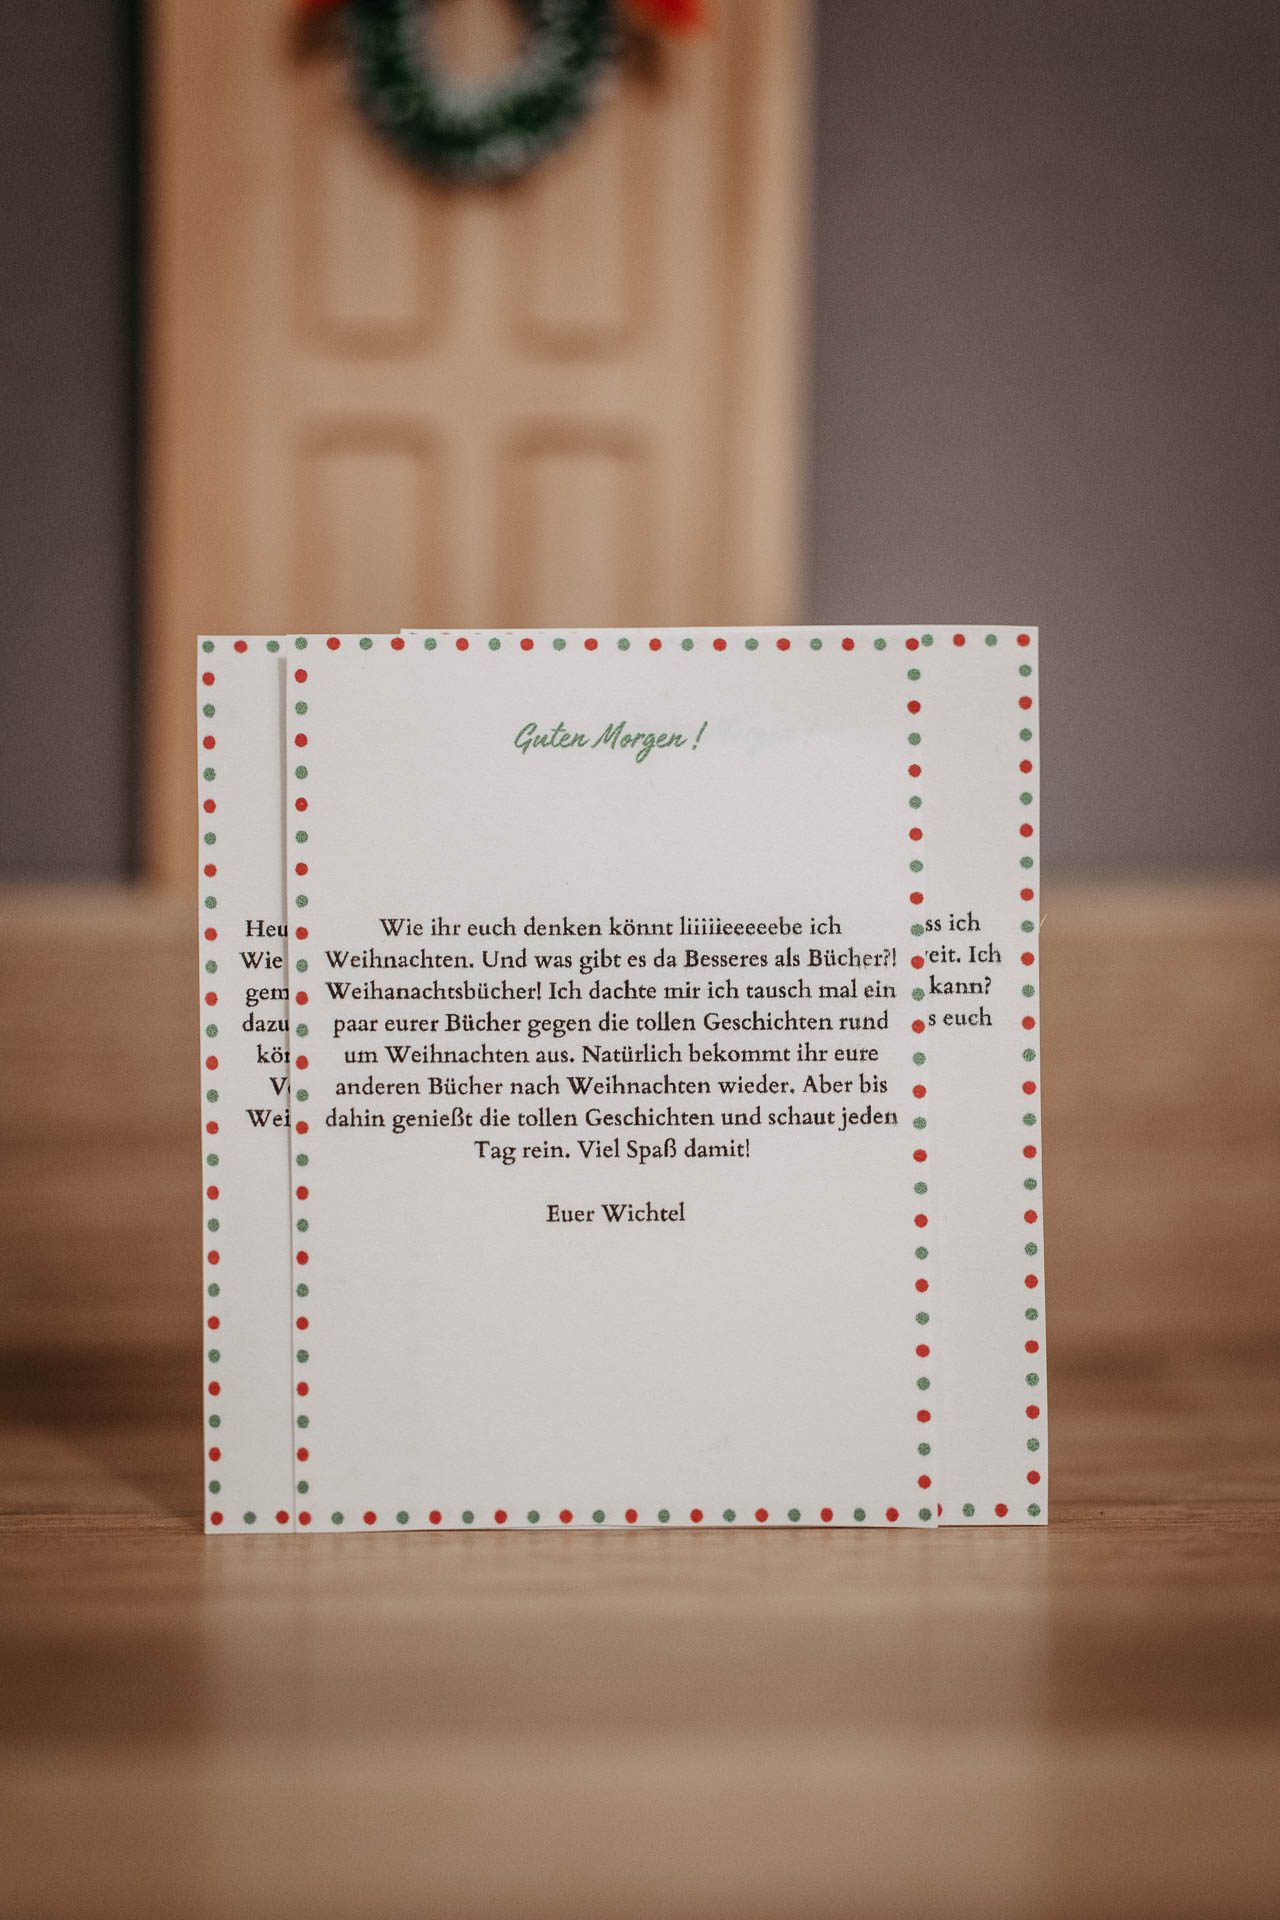 Guten Morgen !
Wie ihr euch denken könnt liiiiieeeeebe ich
Weihnachten. Und was gibt es da Besseres als Bücher?!
Weihanachtsbücher! Ich dachte mir ich tausch mal ein
paar eurer Bücher gegen die tollen Geschichten rund
um Weihnachten aus. Natürlich bekommt ihr eure
anderen Bücher nach Weihnachten wieder. Aber bis
dahin genießt die tollen Geschichten und schaut jeden
Tag rein. Viel Spaß damit!
Euer Wichtel
Heu
Wie
gem
dazu
kön
Wei
ss ich
eit. Ich
kann?
s euch